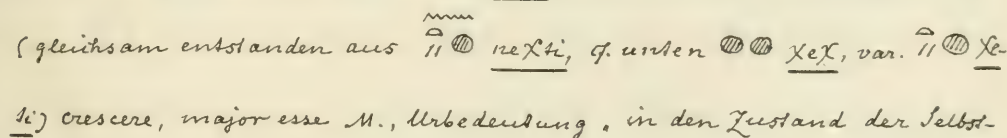 (gleichsam entstanden aus 𓈖𓏏𓏭𓐍 neχti, cf. unten 𓐍𓐍 χeχ, var. 𓏏𓏭𓐍 χe-
ti) crescere, major esse M., Urbedeutung: in den Zustand der Selbst-